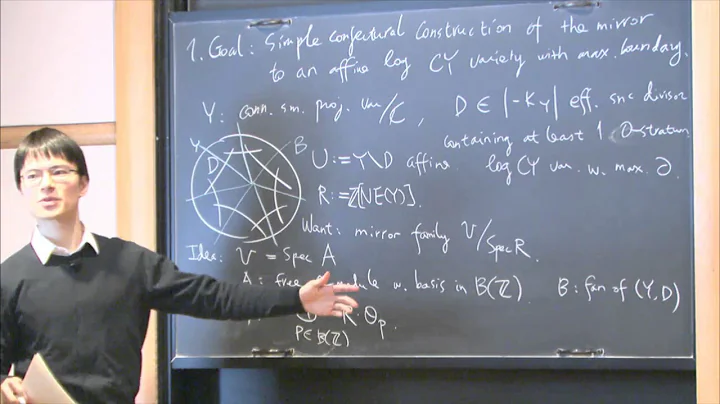 1. Goal: Simple conjectural construction of the mirror
to an affine log CY variety with max. boundary.
Y: conn. sm. proj. var/ℂ, D ∈ |-K_Y| eff. snc divisor
containing at least 1 0-stratum
U := Y\D affine log CY var. w. max. ∂.
R := ℤ[NE(Y)].
Y
D
B
Want: mirror family V/Spec R.
Idea: V = Spec A
A: free R-module w. basis in B(ℤ). B: fan of (Y,D)
⊕ R·θ_p.
P∈B(ℤ)